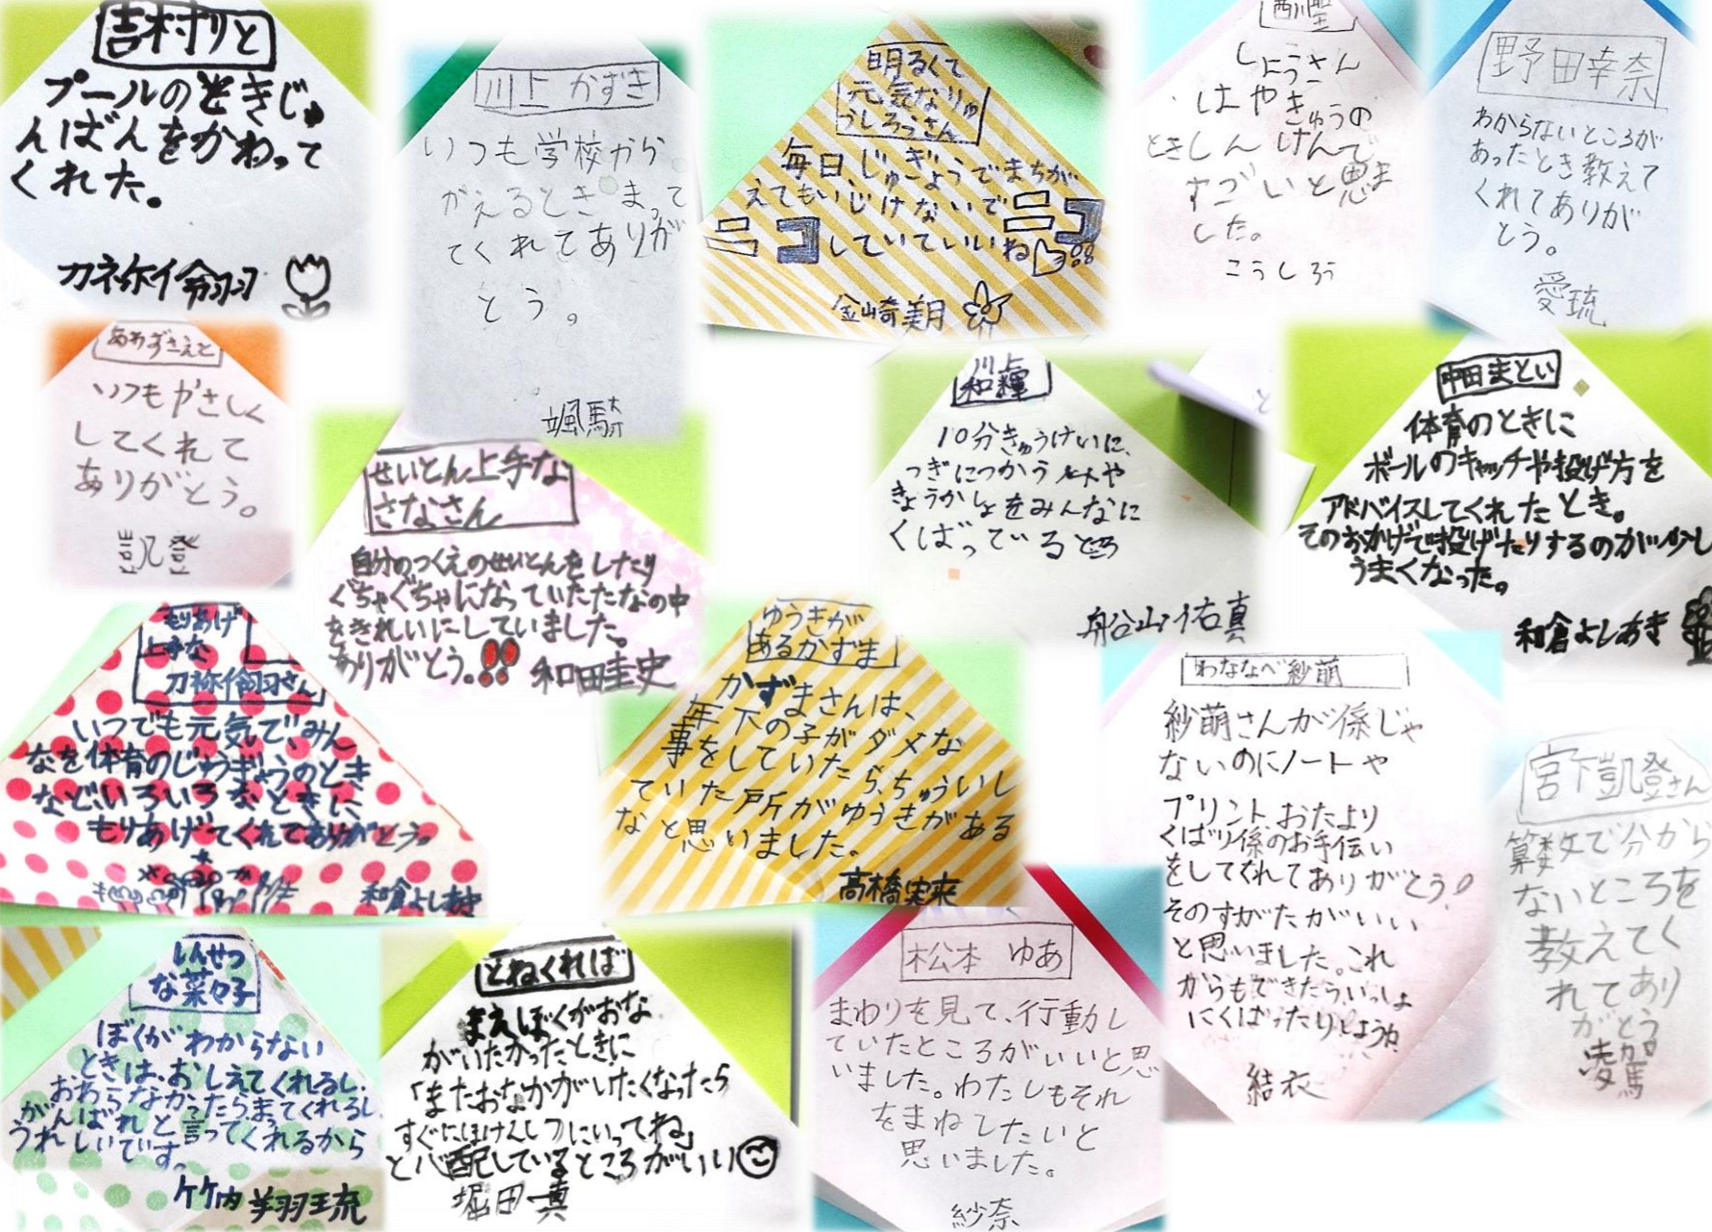 吉村りと
プールのときじゅ
んばんをかわって
くれた。
刀祢伶羽
川上 かずき
いつも学校から
がえるとき まって
てくれてありが
とう。
颯騎
明るくて
元気なりゅ
うしろうさん
毎日じゅぎょうでまちが
えてもいじけないで
ニコしていていいね
金崎美月
しょうさん
はやきゅうの
ときしんけんで
すごいと思ま
した。
こうしろう
野田幸奈
わからないところが
あったとき教えて
くれてありが
とう。
愛琉
あわずさえと
いつもやさしく
してくれて
ありがとう。
凱登
せいとん上手な
さなさん
自分のつくえのせいとんをしたり
ぐちゃぐちゃになっていたたなの中
をきれいにしていました。
ありがとう。!! 和田圭史
川上
和輝
10分きゅうけいに、
つぎにつかうノートや
きょうかしょをみんなに
くばっているところ
舟谷山佑真
中田まとい
体育のときに
ボールのキャッチや投げ方を
アドバイスしてくれたとき。
そのおかげで投げたりするのが少し
うまくなった。
和倉よしあき
もりあげ
上手な
刀祢伶羽さん
いつでも元気で、みん
なを体育のじゅぎょうのとき
など、いろいろなときに
もりあげてくれてありがとう。
和倉よしあき
ゆうきが
あるかずま
かずまさんは、
年下の子がダメな
事をしていたら、ちゅういし
ていた所がゆうきがある
なと思いました。
高橋実来
わななべ紗萌
紗萌さんが係じゃ
ないのにノートや
プリント おたより
くばり係のお手伝い
をしてくれてありがとう!
そのすがたがいい
と思いました。これ
からもできたらいっしょ
にくばったりしようね
結衣
宮下凱登さん
算数で分から
ないところを
教えてく
れてあり
がとう
凌駕
しんせつ
な菜々子
ぼくがわからない
ときは、おしえてくれるし、
おわらなかったらまってくれるし、
がんばれと言ってくれるから
うれしいです。
竹内 羽琉
とねくれは
まえぼくがおな
がいたかったときに
「またおなかがいたくなったら
すぐにほけんしつにいってね」
と心配しているところがいい
堀田一真
松本 ゆあ
まわりを見て、行動し
ていたところがいいと思
いました。わたしもそれ
をまねしたいと
思いました。
紗奈